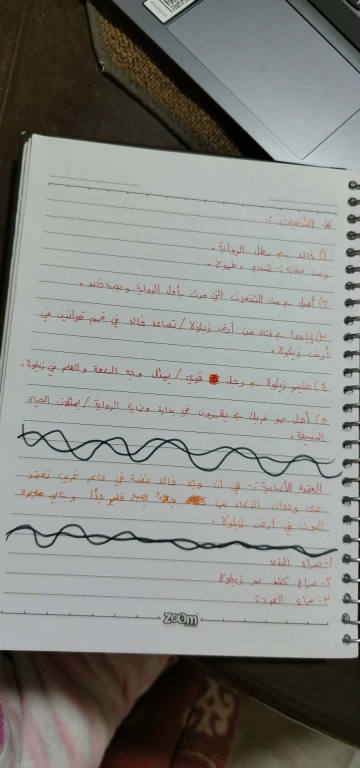 * الشخصيات :-
١) خالد ← بطل الرواية .
ومن صفاته :- شجاع ، طموح .
٢) أسيل ← من الشخصيات التي مرت بأحل الرواية خالد .
٣) ← فتاة من أرض زيكولا / تساعد خالد في فهم قوانين في
أرض زيكولا .
٤) حاكم زيكولا ← رجل قوي / يمثل وجه السلطة والظلم في زيكولا .
٥) أهل ← يظهرون في بداية ونهاية الرواية / يمثلون الحياة
البسيطة .
العقدة الأساسية :- في أن وجد خالد نفسه في عالم غريب تعتمد
على وحدات الذكاء فقير جدًا
الموت في أرض زيكولا .
١- صراع البقاء
٢- صراع زيكولا
٣- صراع العودة
zoom